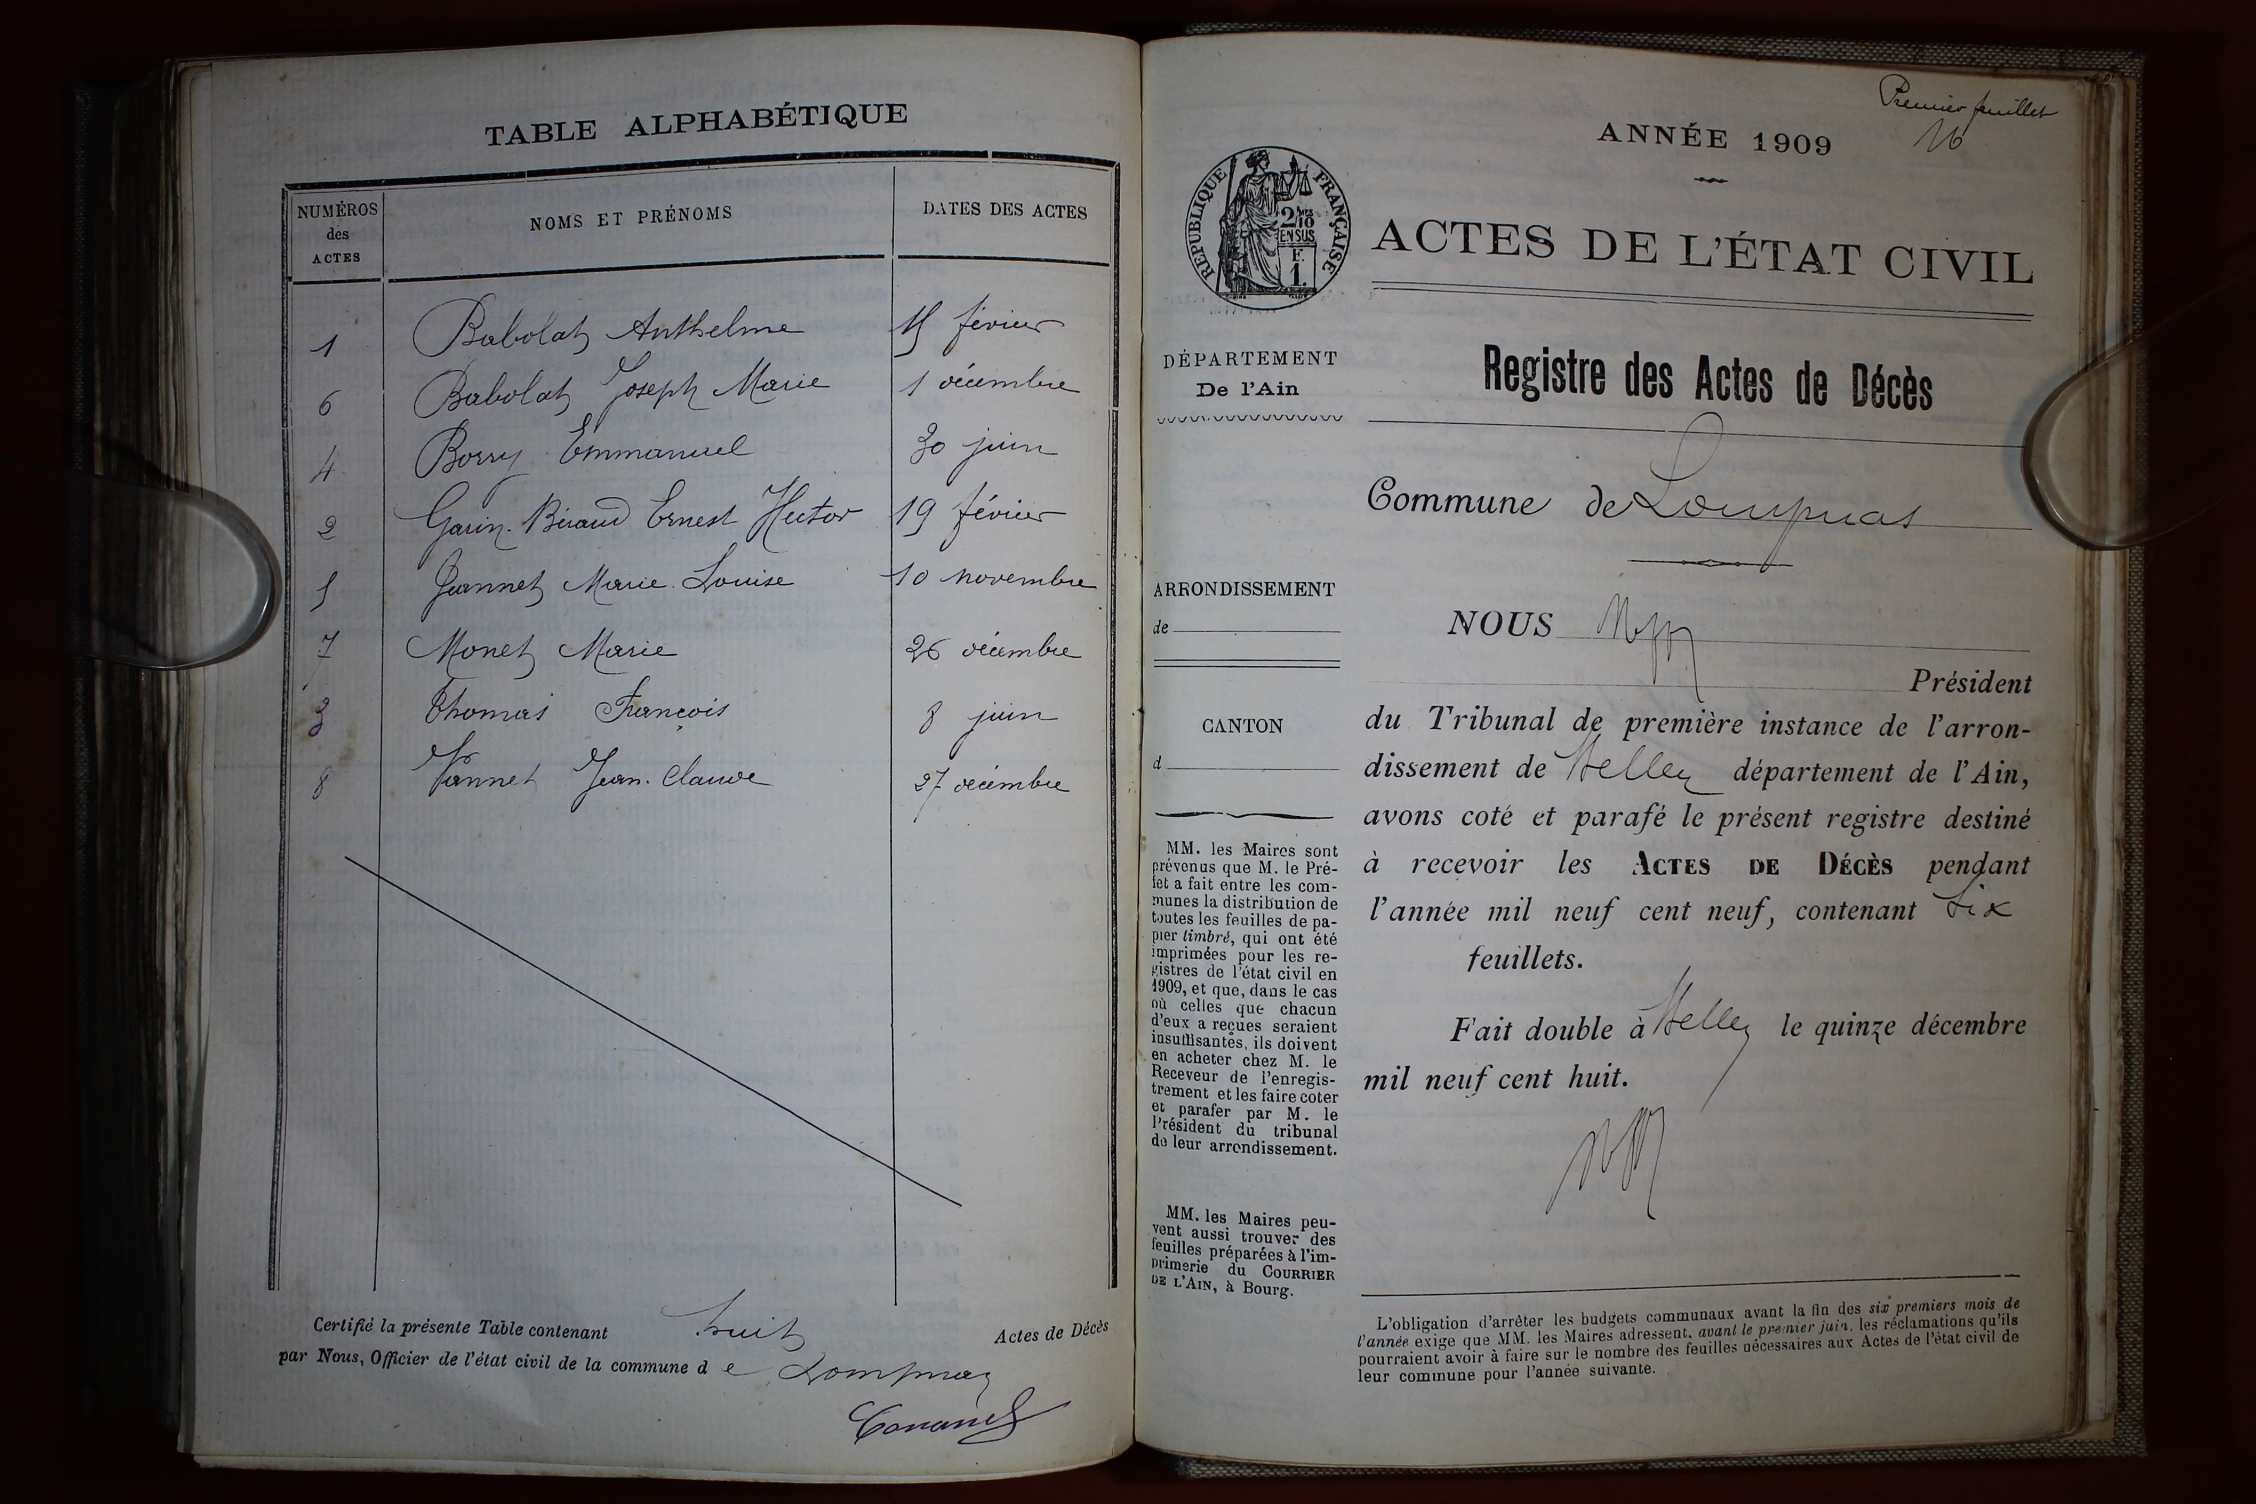 TABLE ALPHABÉTIQUE
NUMÉROS
des
ACTES
NOMS ET PRÉNOMS
DATES DES ACTES
1 Babolat Anthelme 15 février
6 Babolat Joseph Marie 1 décembre
4 Borry Emmanuel 30 juin
2 Garin-Béraud Ernest Hector 19 février
5 Jannet Marie Louise 10 novembre
7 Monet Marie 26 décembre
3 Thomas François 8 juin
8 Vannet Jean-Claude 27 décembre
Certifié la présente Table contenant huit Actes de Décès
par Nous, Officier de l'état civil de la commune d e Lompnaz
Premier feuillet
ANNÉE 1909
RÉPUBLIQUE FRANÇAISE
2 10
EN SUS
F.
1.
ACTES DE L'ÉTAT CIVIL
DÉPARTEMENT
De l'Ain
Registre des Actes de Décès
Commune de Lompnas
ARRONDISSEMENT
de
CANTON
d
MM. les Maires sont
prévenus que M. le Pré-
fet a fait entre les com-
munes la distribution de
toutes les feuilles de pa-
pier timbré, qui ont été
imprimées pour les re-
gistres de l'état civil en
1909, et que, dans le cas
où celles que chacun
d'eux a reçues seraient
insuffisantes, ils doivent
en acheter chez M. le
Receveur de l'enregis-
trement et les faire coter
et parafer par M. le
Président du tribunal
de leur arrondissement.
MM. les Maires peu-
vent aussi trouver des
feuilles préparées à l'im-
primerie du COURRIER
DE L'AIN, à Bourg.
NOUS
Président
du Tribunal de première instance de l'arron-
dissement de Belley département de l'Ain,
avons coté et parafé le présent registre destiné
à recevoir les ACTES DE DÉCÈS pendant
l'année mil neuf cent neuf, contenant six
feuillets.
Fait double à Belley le quinze décembre
mil neuf cent huit.
L'obligation d'arrêter les budgets communaux avant la fin des six premiers mois de
l'année exige que MM. les Maires adressent, avant le premier juin, les réclamations qu'ils
pourraient avoir à faire sur le nombre des feuilles nécessaires aux Actes de l'état civil de
leur commune pour l'année suivante.